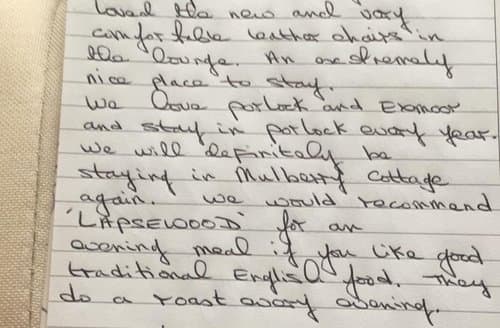 loved the new and very
comfortable leather chairs in
the lounge. An extremely
nice place to stay.
We love porlock and Exmoor
and stay in porlock every year.
We will definitely be
staying in Mulberry Cottage
again. We would recommend
'LAPSEWOOD' for an
evening meal if you like good
traditional English food. They
do a roast every evening.